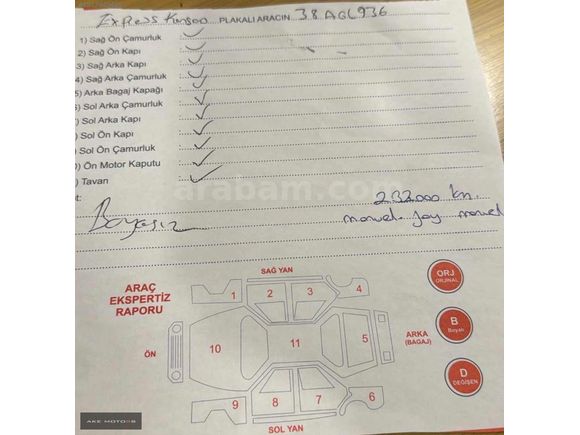 Express Kangoo PLAKALI ARACIN 38 AGL 936
1) Sağ Ön Çamurluk :
2) Sağ Ön Kapı :
3) Sağ Arka Kapı :
4) Sağ Arka Çamurluk :
5) Arka Bagaj Kapağı :
6) Sol Arka Çamurluk :
) Sol Arka Kapı :
) Sol Ön Kapı :
) Sol Ön Çamurluk :
) Ön Motor Kaputu :
) Tavan :
t: 232000 km.
Boyasız
arabam.com
ARAÇ
EKSPERTİZ
RAPORU
SAĞ YAN
1 2 3 4
ÖN 10 11 5 ARKA
(BAGAJ)
9 8 7 6
SOL YAN
ORJ
ORJİNAL
B
Boyalı
D
DEĞİŞEN
AKE MOTORS